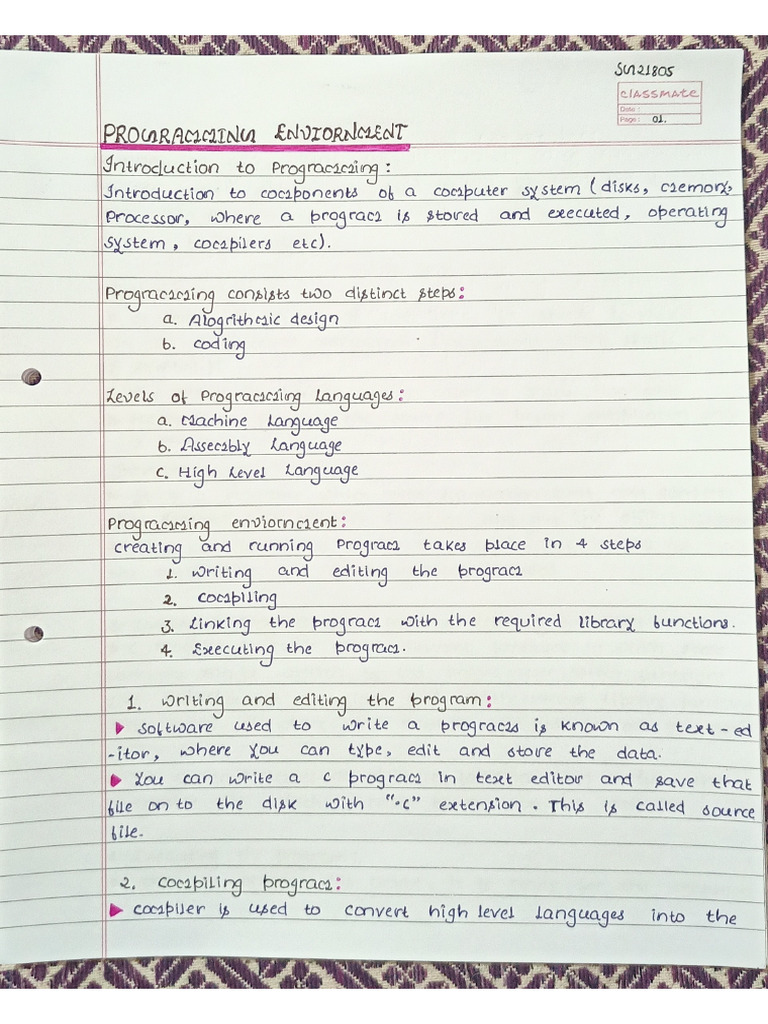 SU21805
CLASSMATE
Date :
Page : 01.
PROGRAMMING ENVIORNMENT
Introduction to Programming :
Introduction to components of a computer system (disks, memory,
Processor, where a program is stored and executed, operating
system, compilers etc).
Programming consists two distinct steps:
a. Alogrithmic design
b. coding
Levels of Programming Languages:
a. Machine Language
b. Assembly Language
c. High Level Language
Programming enviornment:
creating and running Program takes place in 4 steps
1. Writing and editing the program
2. Compiling
3. Linking the program with the required library functions.
4. Executing the program.
1. Writing and editing the program:
▶ Software used to write a programs is known as text-ed
-itor, where you can type, edit and store the data.
▶ You can write a c program in text editor and save that
file on to the disk with "·c" extension. This is called source
file.
2. Compiling program:
▶ Compiler is used to convert high level languages into the